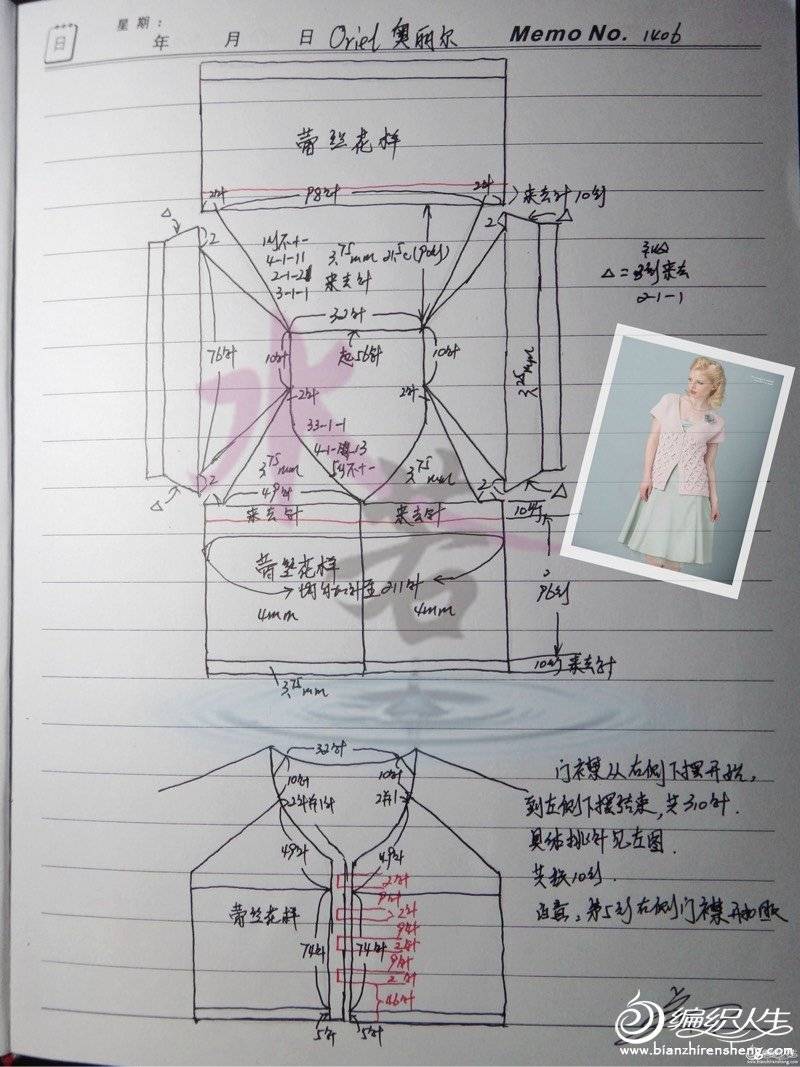 星期：
日 年 月 日 Oriel 奥丽尔 Memo No. 1406
蕾丝花样
2针 98针 2针 来去针10行
△ 2 2 △
1行不+-
4-1-11
2-1-21
3-1-1
3.75mm
来去针
21.5c(90行)
△=3行来去
2-1-1
32针
76针 10针 起56针 10针 3.25mm
2针 2针
33-1-1
4-1-13
5行不+-
3.75mm 3.75mm
2 2
△ 49针 △
来去针 来去针 10行
蕾丝花样
均匀加针至211针
4mm 4mm
96行
10行来去针
3.75mm
32针
10针 10针
2针并1针 2并1
49针 49针
门襟从右侧下摆开始，
到左侧下摆结束，共310针.
具体挑针见左图.
共织10行.
注意，第5行右侧门襟开扣眼
2针
9针
蕾丝花样 2针
9针
74针 74针 2针
9针
2针
46针
5针 5针
编织人生
www.bianzhirensheng.com
水若